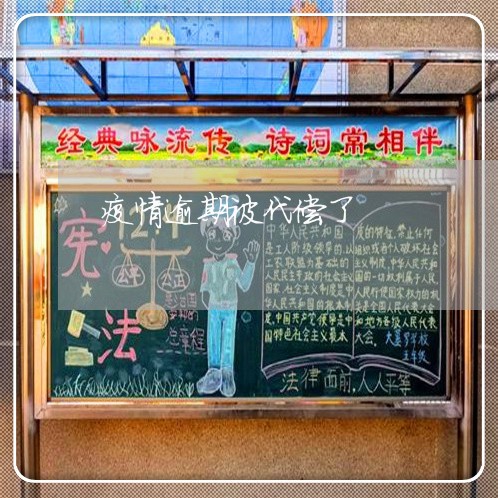 经典咏流传 诗词常相伴
疫情逾期被代偿了
宪
法
12.4
公平
公正
总章程
中华人民共和国
是工人阶级领导的,以
工农联盟为基础的
人民民主专政的社会主义
国家,社会主义制度是中
华人民共和国的根本制
度,中国共产党领导是中
国特色社会主义最本
质的特征,禁止任何
组织或者个人破坏社会
主义制度,中华人民共和
国的一切权利属于人民,
人民行使国家权力的机
关是全国人民代表大会
和地方各级人民代表
大会。
五年级
法律面前,人人平等